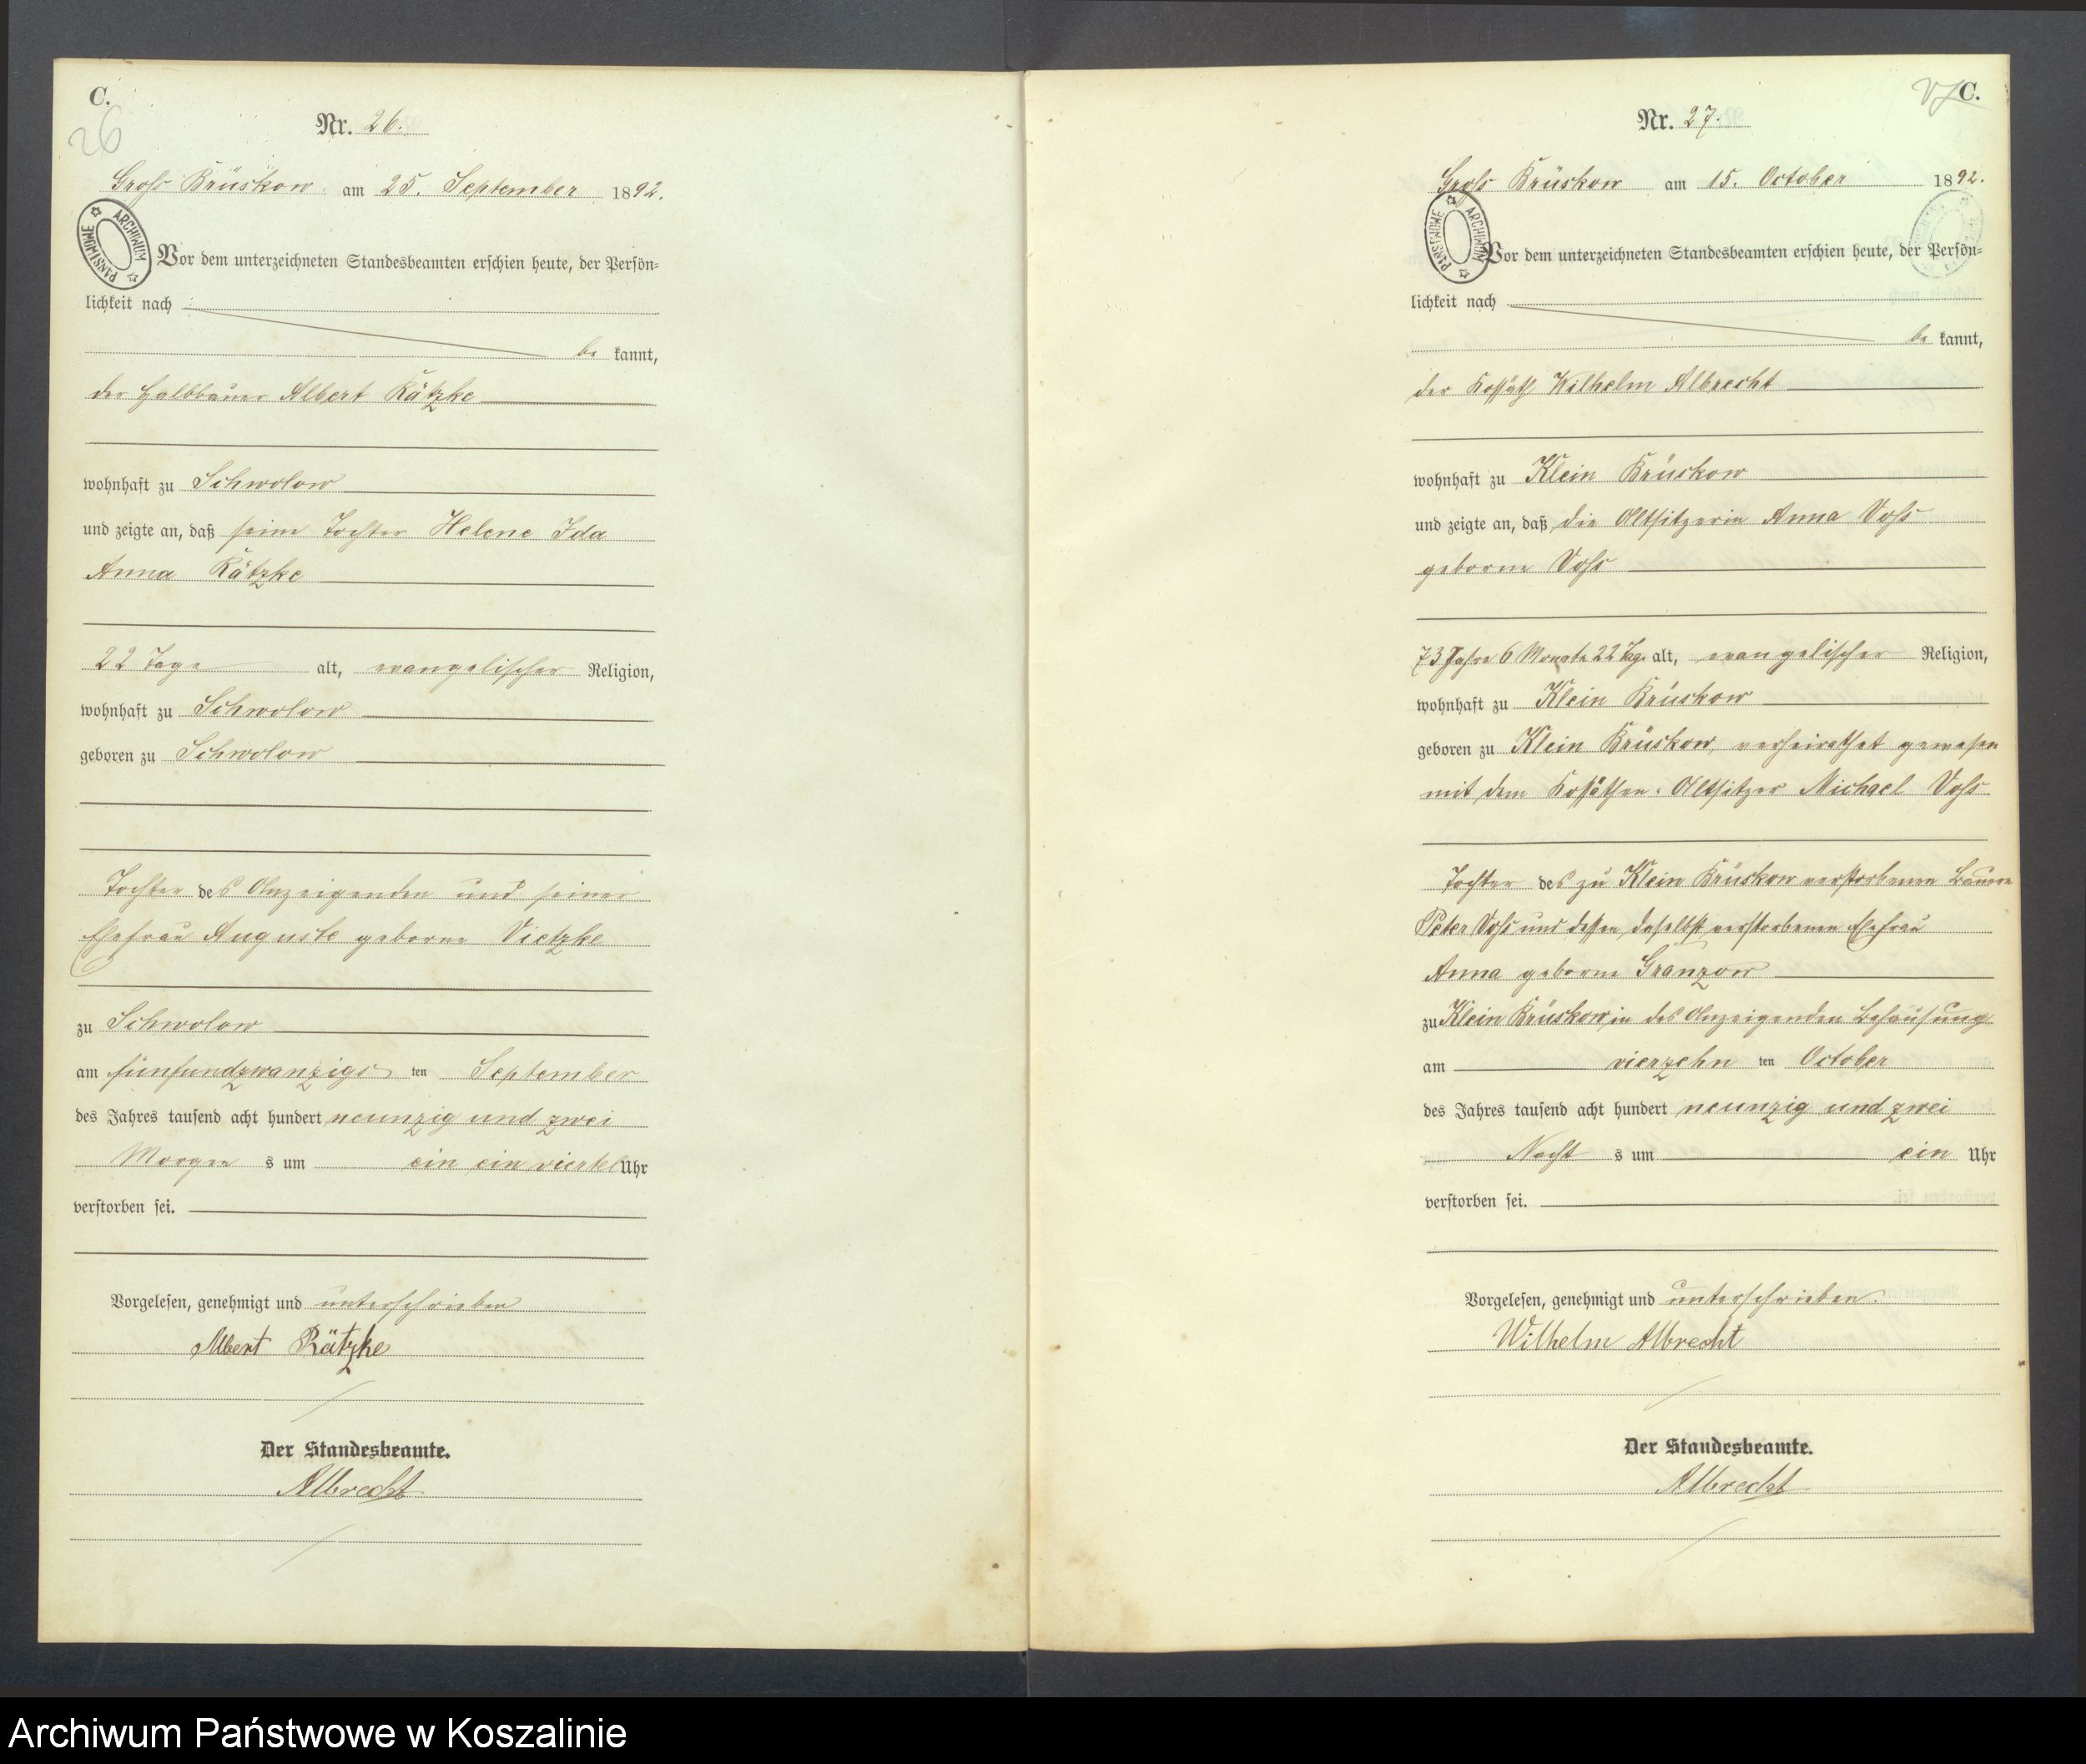 C.
26
Nr. 26.
Groß Brüskow am 25. September 1892.
ARCHIWUM PAŃSTWOWE
Vor dem unterzeichneten Standesbeamten erschien heute, der Persön=
lichkeit nach
be kannt,
der Halbbauer Albert Rätzke
wohnhaft zu Schwolow
und zeigte an, daß seine Tochter Helene Ida
Anna Rätzke
22 Tage alt, evangelischer Religion,
wohnhaft zu Schwolow
geboren zu Schwolow
Tochter des Anzeigenden und seiner
Ehefrau Auguste geborne Vietzke
zu Schwolow
am fünfundzwanzigs ten September
des Jahres tausend acht hundert neunzig und zwei
Morgen s um ein ein viertel Uhr
verstorben sei.
Vorgelesen, genehmigt und unterschrieben
Albert Rätzke
Der Standesbeamte.
Albrecht
C.
Nr. 27.
Groß Brüskow am 15. October 1892.
ARCHIWUM PAŃSTWOWE
Vor dem unterzeichneten Standesbeamten erschien heute, der Persön=
lichkeit nach
be kannt,
der Kossäth Wilhelm Albrecht
wohnhaft zu Klein Brüskow
und zeigte an, daß die Altsitzerin Anna Voß
geborne Voß
73 Jahre 6 Monate 22 Tage alt, evangelischer Religion,
wohnhaft zu Klein Brüskow
geboren zu Klein Brüskow, verheirathet gewesen
mit dem Kossäthen-Altsitzer Michael Voß
Tochter des zu Klein Brüskow verstorbenen Bauern
Peter Voß und dessen daselbst verstorbenen Ehefrau
Anna geborne Granzow
zu Klein Brüskow in des Anzeigenden Behausung
am vierzehn ten October
des Jahres tausend acht hundert neunzig und zwei
Nacht s um ein Uhr
verstorben sei.
Vorgelesen, genehmigt und unterschrieben.
Wilhelm Albrecht
Der Standesbeamte.
Albrecht
Archiwum Państwowe w Koszalinie